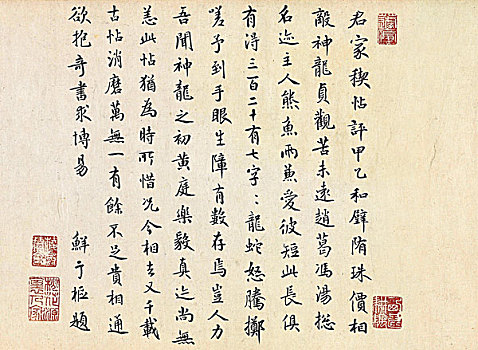 君家稧帖評甲乙和璧隋珠價相
敵神龍貞觀苦未遠趙葛馮湯総
名迹主人熊魚兩兼愛彼短此長俱
有得三百二十有七字〻龍蛇怒騰擲
嗟予到手眼生障有數存焉豈人力
吾聞神龍之初黃庭樂毅真迹尚無
恙此帖猶為時所惜況今相去又千載
古帖消磨萬無一有餘不足貴相通
欲抱奇書求博易 鮮于樞題